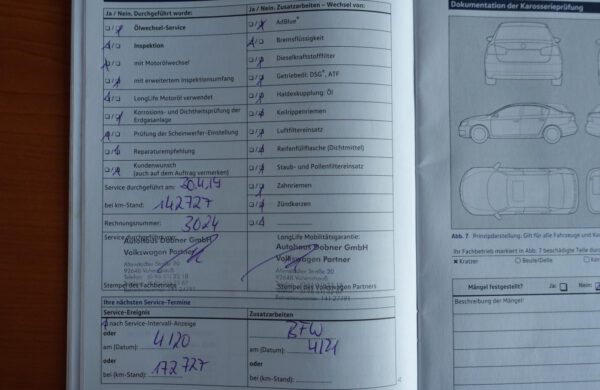 Ja / Nein. Durchgeführt wurde:
Ja / Nein. Zusatzarbeiten – Wechsel von:
Ölwechsel-Service
AdBlue®
Inspektion
Bremsflüssigkeit
mit Motorölwechsel
Dieselkraftstofffilter
mit erweitertem Inspektionsumfang
Getriebeöl: DSG®, ATF
LongLife Motoröl verwendet
Haldexkupplung: Öl
Korrosions- und Dichtheitsprüfung der Erdgasanlage
Keilrippenriemen
Prüfung der Scheinwerfer-Einstellung
Luftfiltereinsatz
Reparaturempfehlung
Reifenfüllflasche (Dichtmittel)
Kundenwunsch
(auch auf dem Auftrag vermerken)
Staub- und Pollenfiltereinsatz
Service durchgeführt am: 30.4.19
Zahnriemen
bei km-Stand: 142727
Zündkerzen
Rechnungsnummer: 3024
Service durchgeführt
LongLife Mobilitätsgarantie:
Autohaus Dobner GmbH
Autohaus Dobner GmbH
Volkswagen Partner
Volkswagen Partner
Stempel des Fachbetriebs
Stempel des Volkswagen Partners
Ihre nächsten Service-Termine
Service-Ereignis
Zusatzarbeiten
nach Service-Intervall-Anzeige
BFW
oder
am (Datum): 4/20
am (Datum): 4/21
oder
oder
bei (km-Stand): 172727
bei (km-Stand):
Dokumentation der Karosserieprüfung
Abb. 7 Prinzipdarstellung. Gilt für alle Fahrzeuge und
Ihr Fachbetrieb markiert in Abb. 7 beschädigte Teile
x Kratzer
Beule/Delle
Mängel festgestellt? Ja: Nein:
Beschreibung der Mängel: